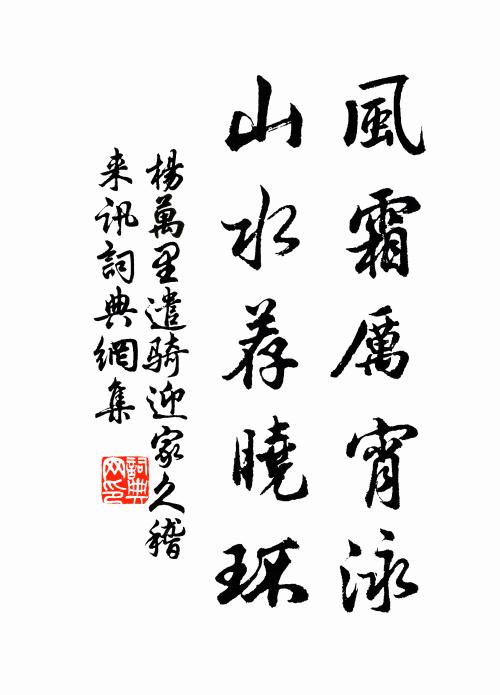 風霜厲宵泳
山水荐曉環
楊萬里遣騎迎家久稽
来訊詞典網集
詞典
网印